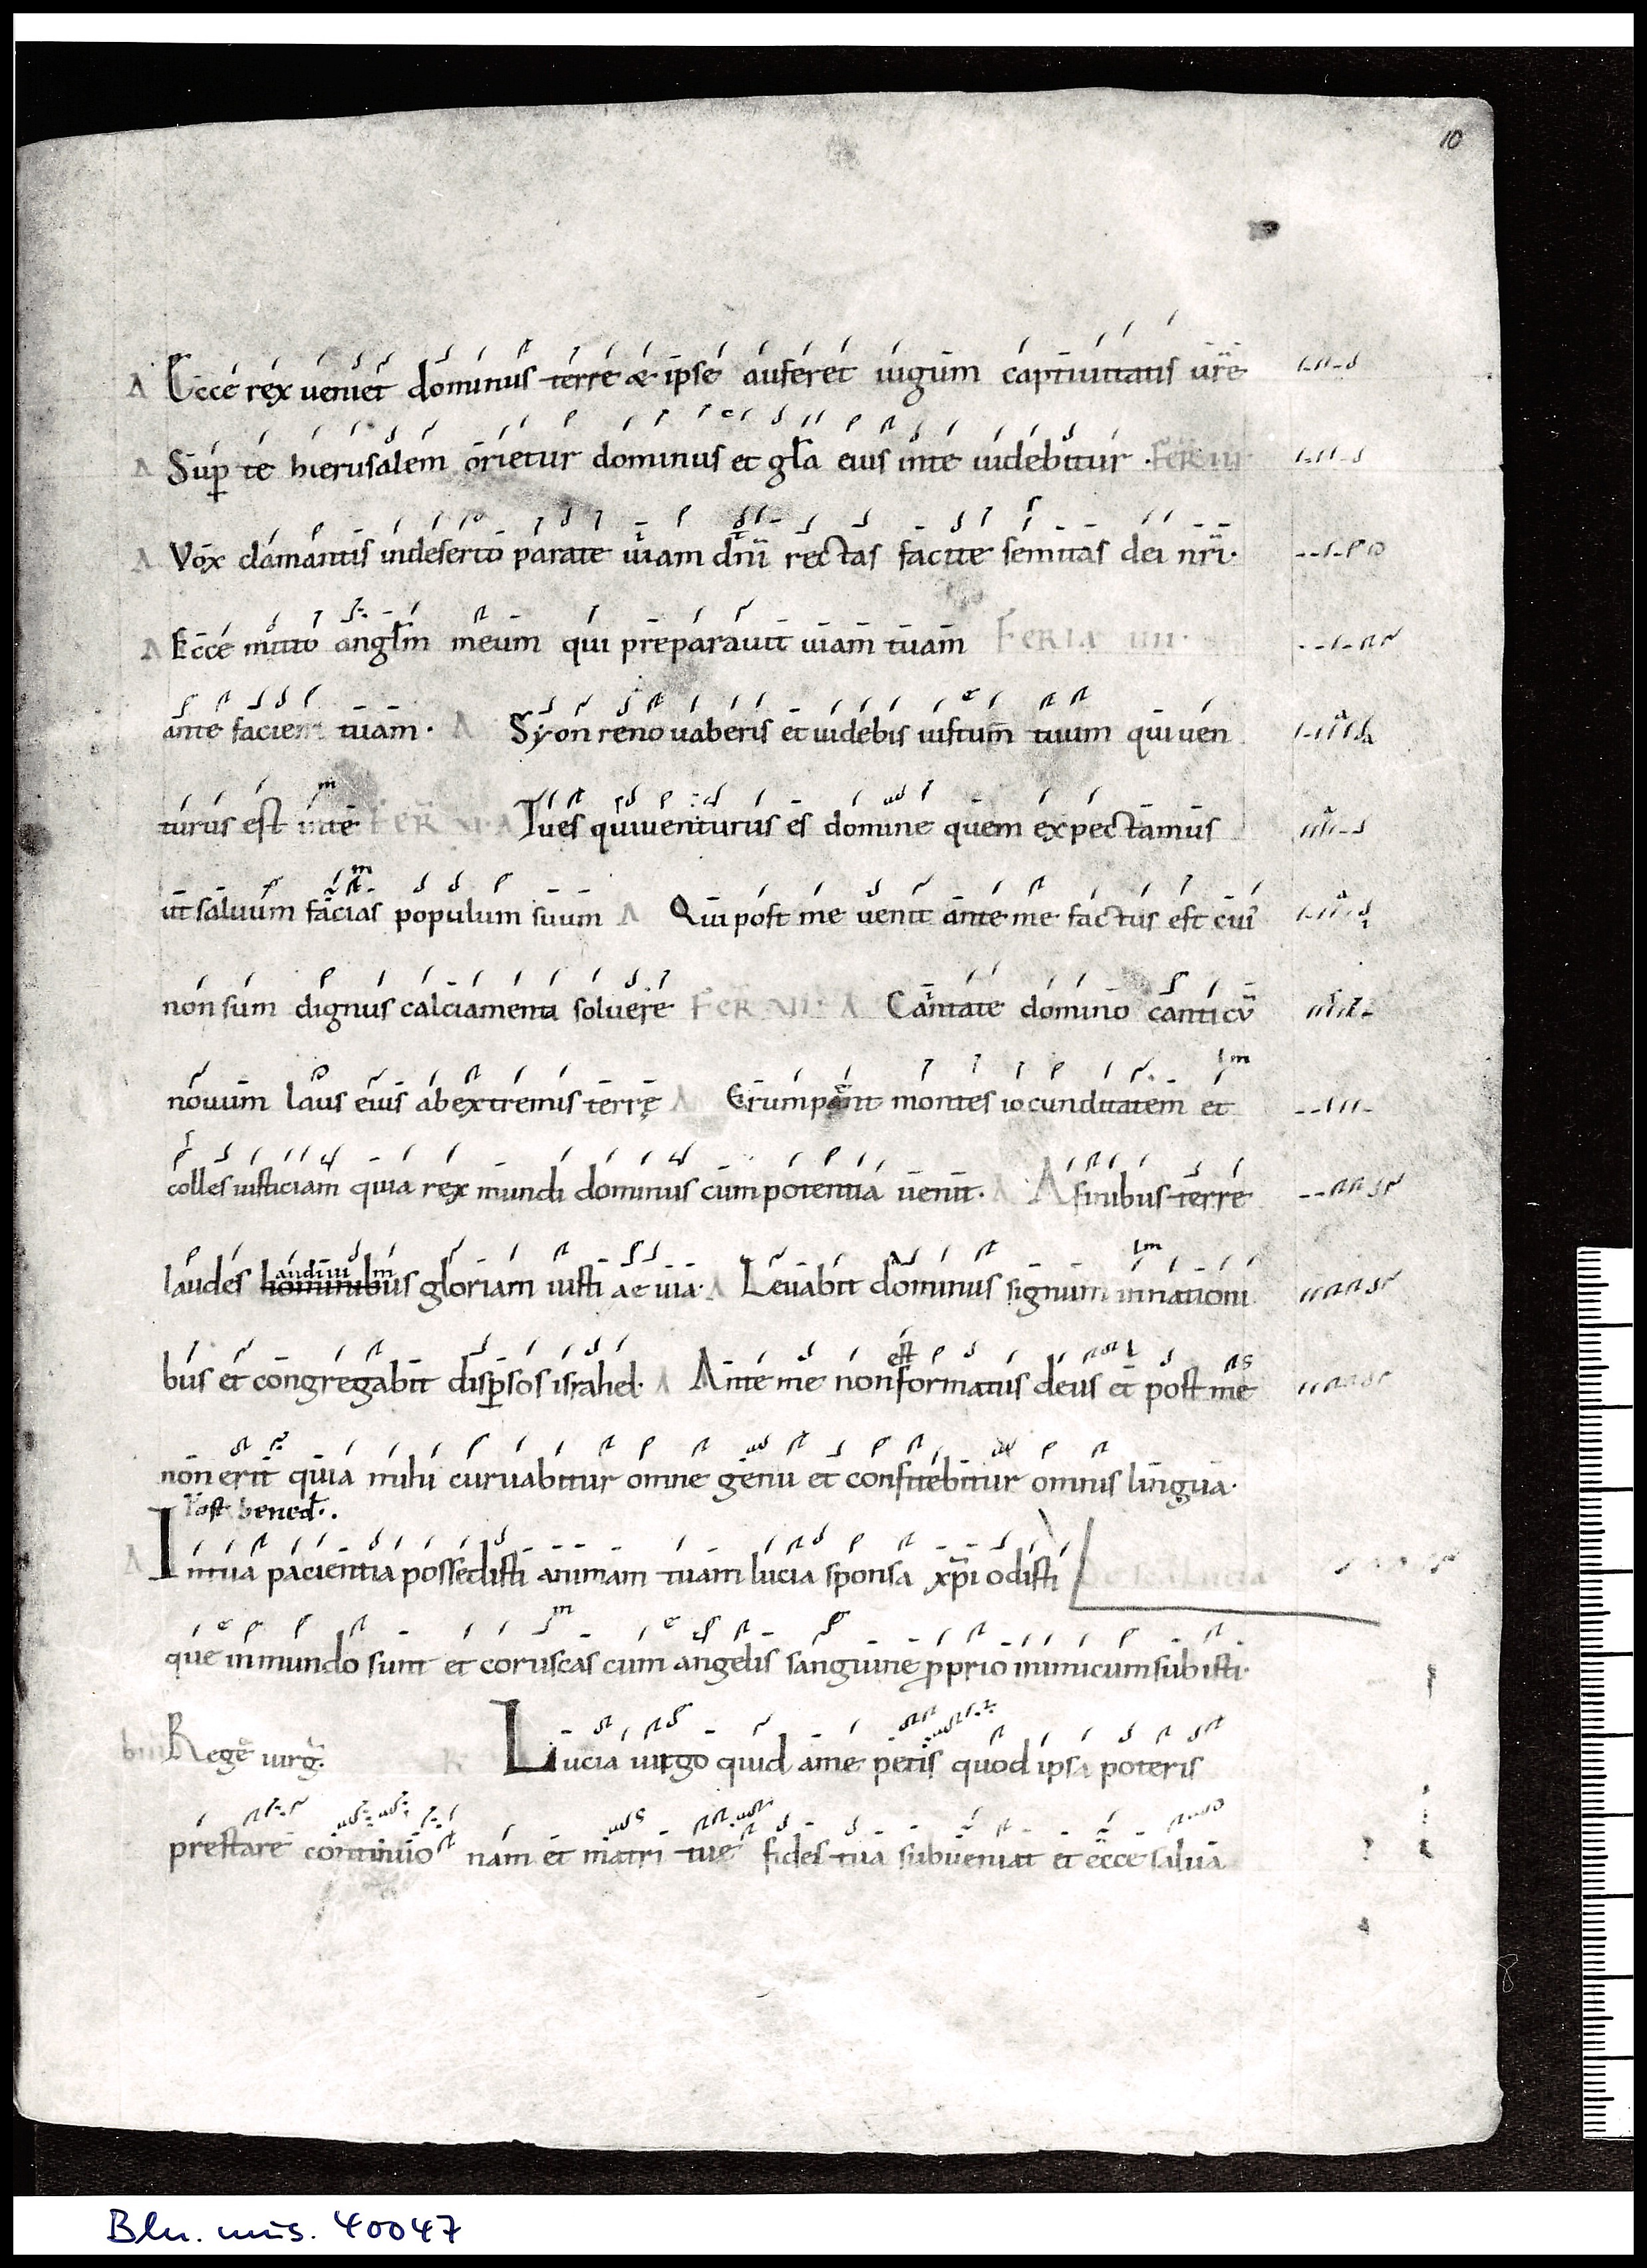 10
A Ecce rex ueniet dominus terre & ipse auferet iugum captiuitatis ur̄e
A Sup te hierusalem orietur dominus et gl̄a eius inte uidebitur . FER III
A Vox clamantis indeserto parate uiam dn̄i rectas facite semitas dei nr̄i.
A Ecce mitto angl̄m meum qui preparauit uiam tuam FERIA IIII.
ante faciem tuam. A Syon renouaberis et uidebis iustum tuum qui uen
turus est inte FER VI A Tu es quiuenturus es domine quem expectamus
ut saluum facias populum suum A Qui post me uenit ante me factus est cui
non sum dignus calciamenta soluere FER VII. A Cantate domino canticū
nouum laus eius abextremis terrę A Erumpant montes iocunditatem et
colles iusticiam quia rex mundi dominus cum potentia uenit. A A finibus terre
audiuim
laudes hominibus gloriam iusti ac uia. A Leuabit dominus signum innationi
est
bus et congregabit disp̄sos israhel. A Ante me non formatus deus et post me
non erit quia mihi curuabitur omne genu et confitebitur omnis lingua.
Post bened̄.
A Intua pacientia possedisti animam tuam lucia sponsa xp̄i odisti De sca Lucia
que inmundo sunt et coruscas cum angelis sanguine p̄prio inimicum subisti.
Regē uirḡ. R Lucia uirgo quid ame petis quod ipsa poteris
prestare continuo nam et matri tue fides tua subueniat et ecce salua
Bln. mus. 40047